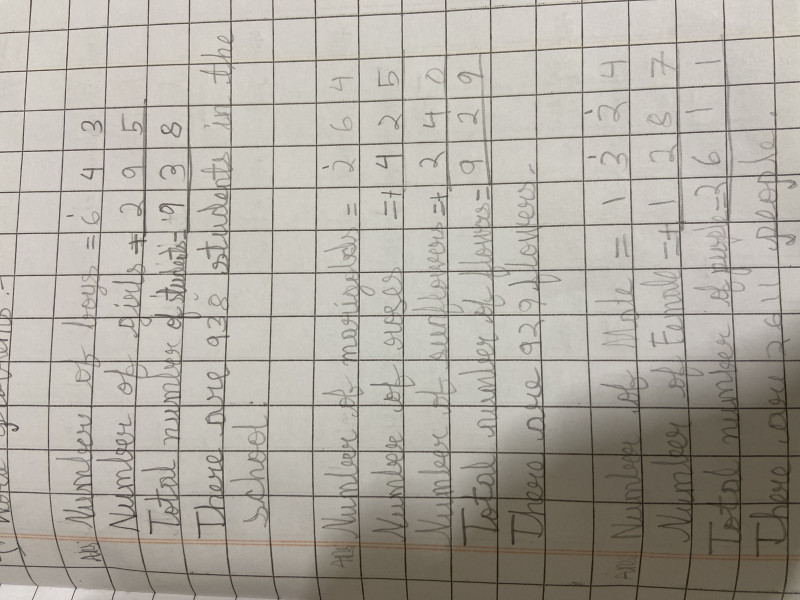 Ans Number of boys = 6 4 3
Number of girls + 2 9 5
Total number of students = 9 3 8
There are 938 students in the
school.
Ans Number of marigolds = 2 6 4
Number of roses =+ 4 2 5
Number of sunflowers =+ 2 4 0
Total number of flowers = 9 2 9
There are 929 flowers.
Ans Number of Male = 1 3 2 4
Number of Female =+ 1 2 8 7
Total number of people = 2 6 1 1
There are 2611 people.